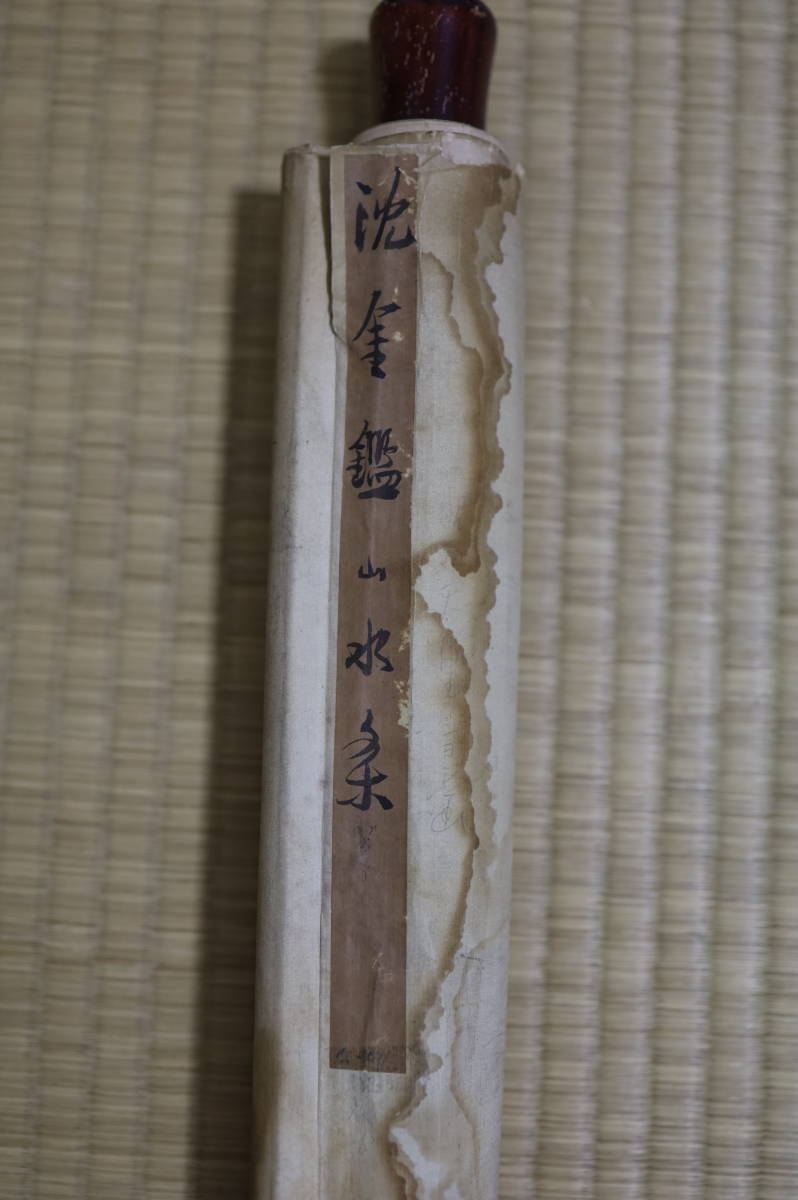 沈金鑑山水条